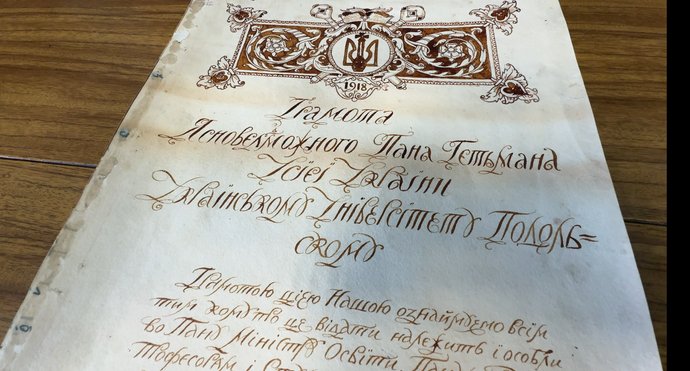 1918
Грамота
Ясновельможного Пана Гетьмана
Усієї України
Українському Університету Подоль=
скому
Грамотою цією Нашою ознаймуемо всім
тим кому те це відати належить і особли
во Пану Міністру Освіти, Пану
Професорам і